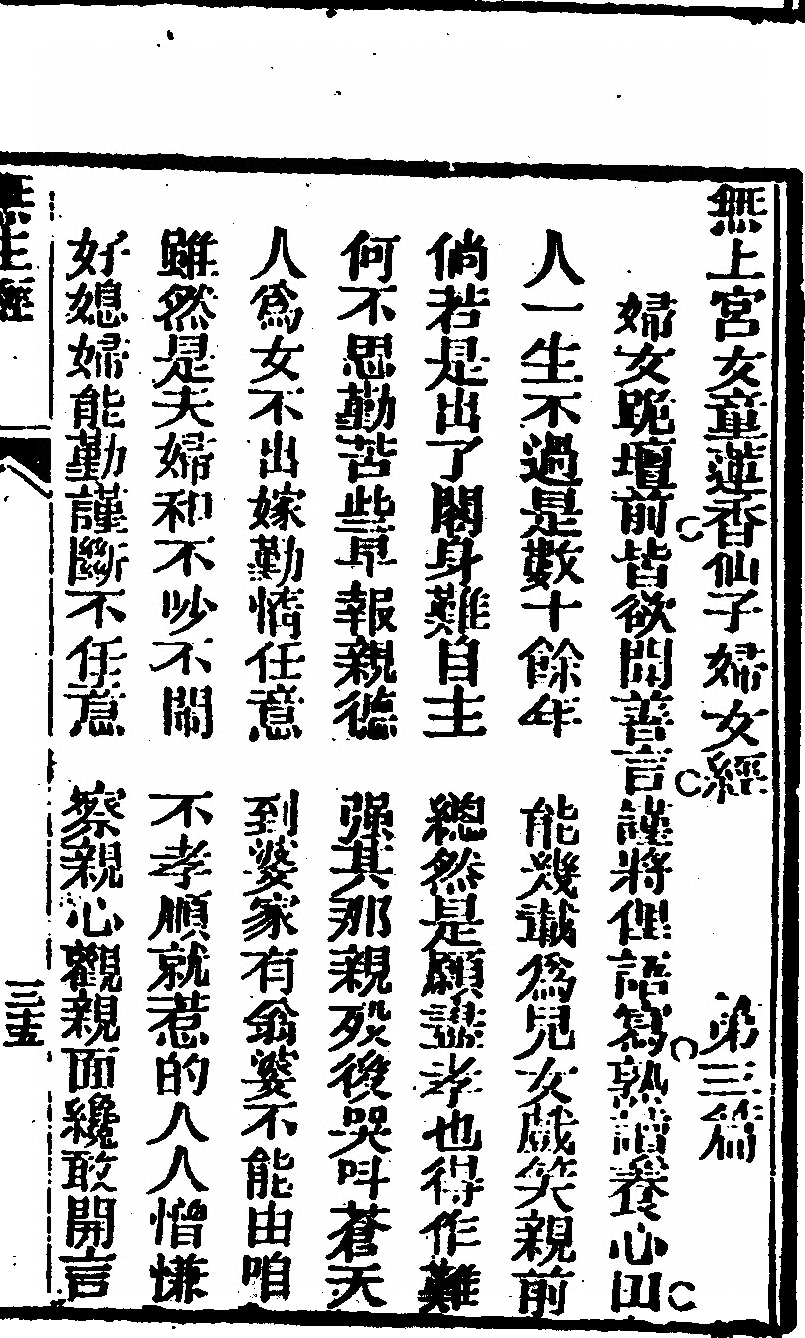 無上宮女童蓮香仙子婦女經 第三篇
婦女跪壇前皆欲開善言謹將俚語寫熟讀養心田
人一生不過是數十餘年 能幾載為兒女戲笑親前
倘若是出了閣身難自主 總然是願盡孝也得作難
何不思勤苦些早報親德 强其那親歿後哭叫蒼天
人爲女不出嫁勤惰任意 到婆家有翁婆不能由咱
雖然是夫婦和不吵不鬧 不孝順就惹的人人憎嫌
好媳婦能勤謹斷不任意 察親心觀親面纔敢開言
生經 三十五